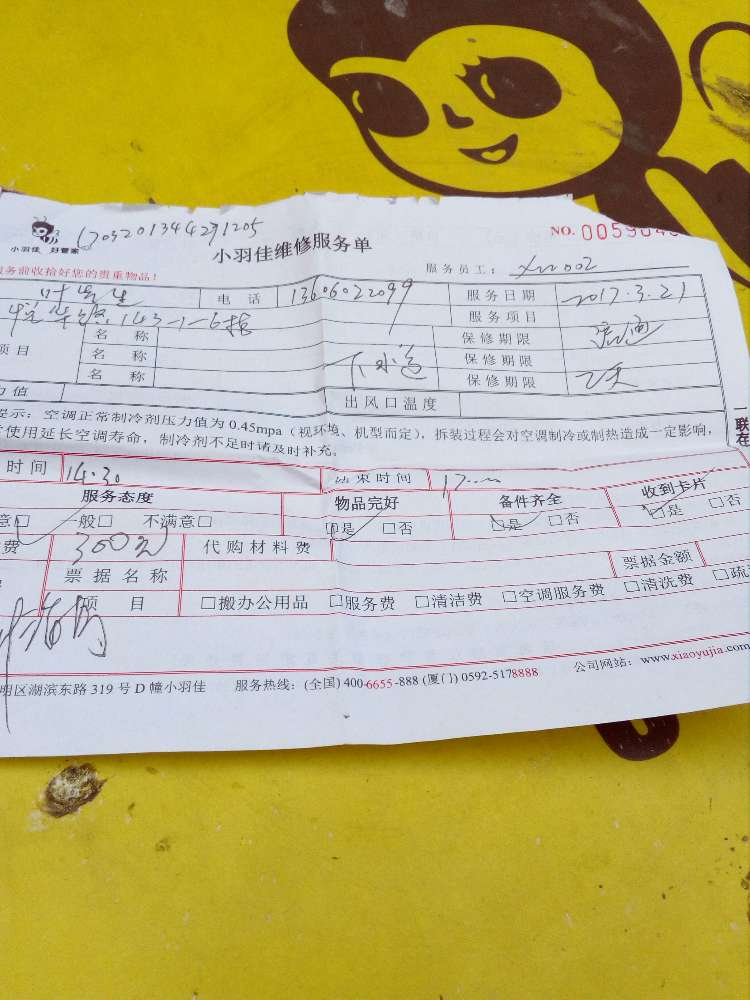 小羽佳 好管家
1703201344291205
小羽佳维修服务单
NO. 00590
务前收拾好您的贵重物品！
服务员工：xm002
叶先生 电话 13606022099 服务日期 2017.3.21
143-1-6楼 服务项目
项目 名称 保修期限 疏通
名称 下水道 保修期限
名称 保修期限 2天
力值 出风口温度
提示：空调正常制冷剂压力值为0.45mpa（视环境、机型而定），拆装过程会对空调制冷或制热造成一定影响，
使用延长空调寿命，制冷剂不足时诸及时补充。
一联在
时间 14.30 结束时间 17
服务态度 物品完好 备件齐全 收到卡片
意□ 一般□ 不满意□ □是 □否 □是 □否 □是 □否
费 300元 代购材料费
票据名称 票据金额
项目 □搬办公用品 □服务费 □清洁费 □空调服务费 □清洗费 □疏
明区湖滨东路319号D幢小羽佳 服务热线：(全国) 400-6655-888 (厦门) 0592-5178888 公司网站：www.xiaoyujia.com